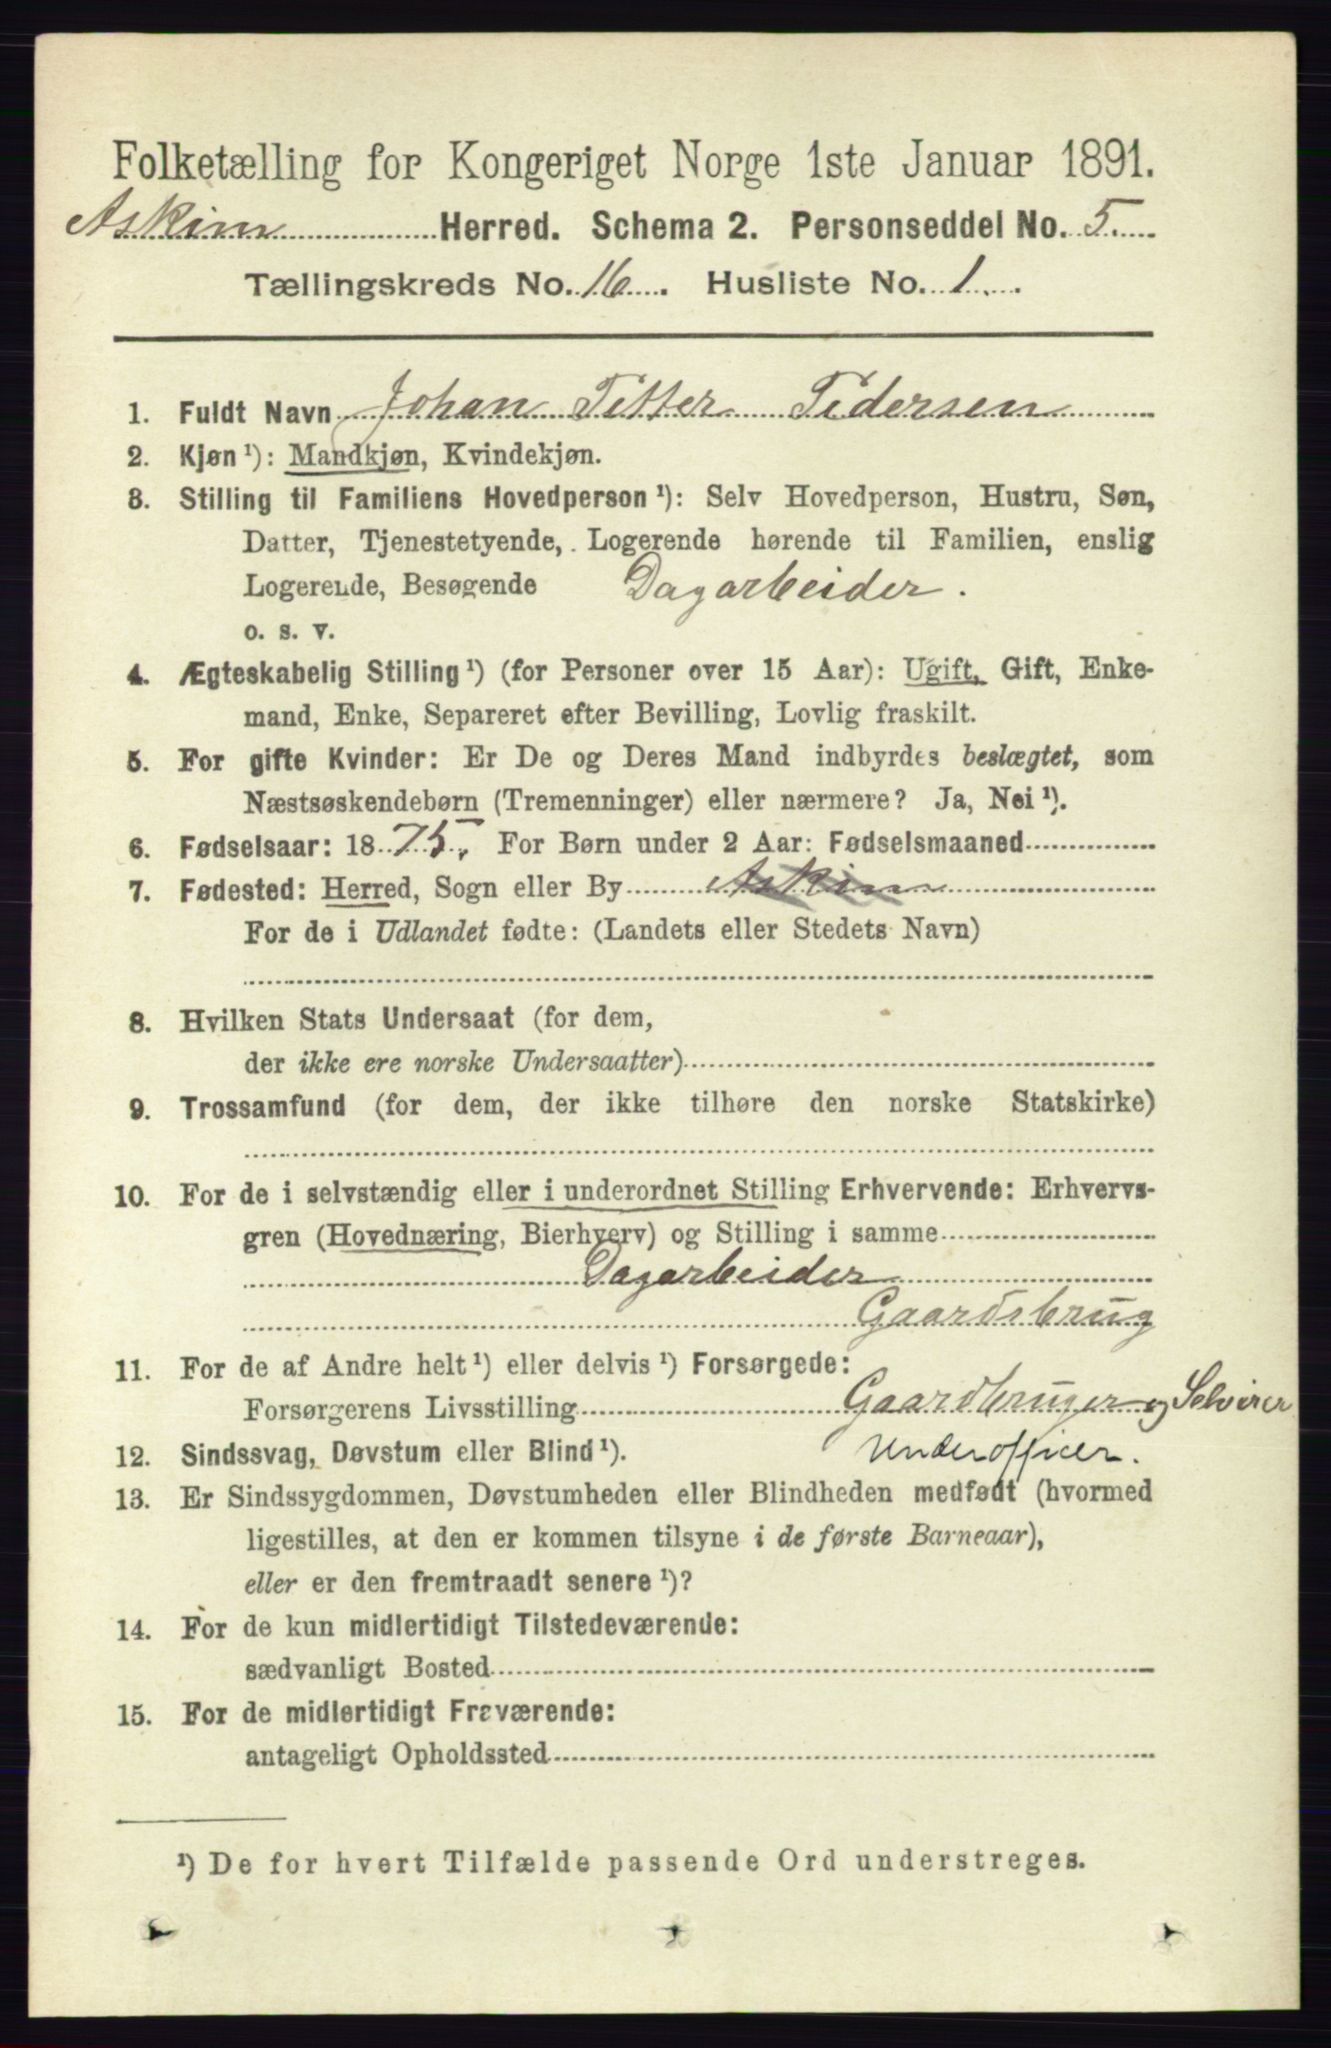 Folketælling for Kongeriget Norge 1ste Januar 1891.
Askim Herred. Schema 2. Personseddel No. 5
Tællingskreds No. 16. Husliste No. 1.
1. Fuldt Navn Johan Petter Pedersen
2. Kjøn ¹): Mandkjøn, Kvindekjøn.
3. Stilling til Familiens Hovedperson ¹): Selv Hovedperson, Hustru, Søn,
Datter, Tjenestetyende, Logerende hørende til Familien, enslig
Logerende, Besøgende Dagarbeider.
o. s. v.
4. Ægteskabelig Stilling ¹) (for Personer over 15 Aar): Ugift, Gift, Enke-
mand, Enke, Separeret efter Bevilling, Lovlig fraskilt.
5. For gifte Kvinder: Er De og Deres Mand indbyrdes beslægtet, som
Næstsøskendebørn (Tremenninger) eller nærmere? Ja, Nei ¹).
6. Fødselsaar: 1875. For Børn under 2 Aar: Fødselsmaaned
7. Fødested: Herred, Sogn eller By Askim
For de i Udlandet fødte: (Landets eller Stedets Navn)
8. Hvilken Stats Undersaat (for dem,
der ikke ere norske Undersaatter)
9. Trossamfund (for dem, der ikke tilhøre den norske Statskirke)
10. For de i selvstændig eller i underordnet Stilling Erhvervende: Erhvervs-
gren (Hovednæring, Bierhverv) og Stilling i samme
Dagarbeider
Gaardsbrug
11. For de af Andre helt ¹) eller delvis ¹) Forsørgede:
Forsørgerens Livsstilling Gaardbruger og Selveier
12. Sindssvag, Døvstum eller Blind ¹). Underofficer.
13. Er Sindssygdommen, Døvstumheden eller Blindheden medfødt (hvormed
ligestilles, at den er kommen tilsyne i de første Barneaar),
eller er den fremtraadt senere ¹)?
14. For de kun midlertidigt Tilstedeværende:
sædvanligt Bosted
15. For de midlertidigt Fraværende:
antageligt Opholdssted
¹) De for hvert Tilfælde passende Ord understreges.